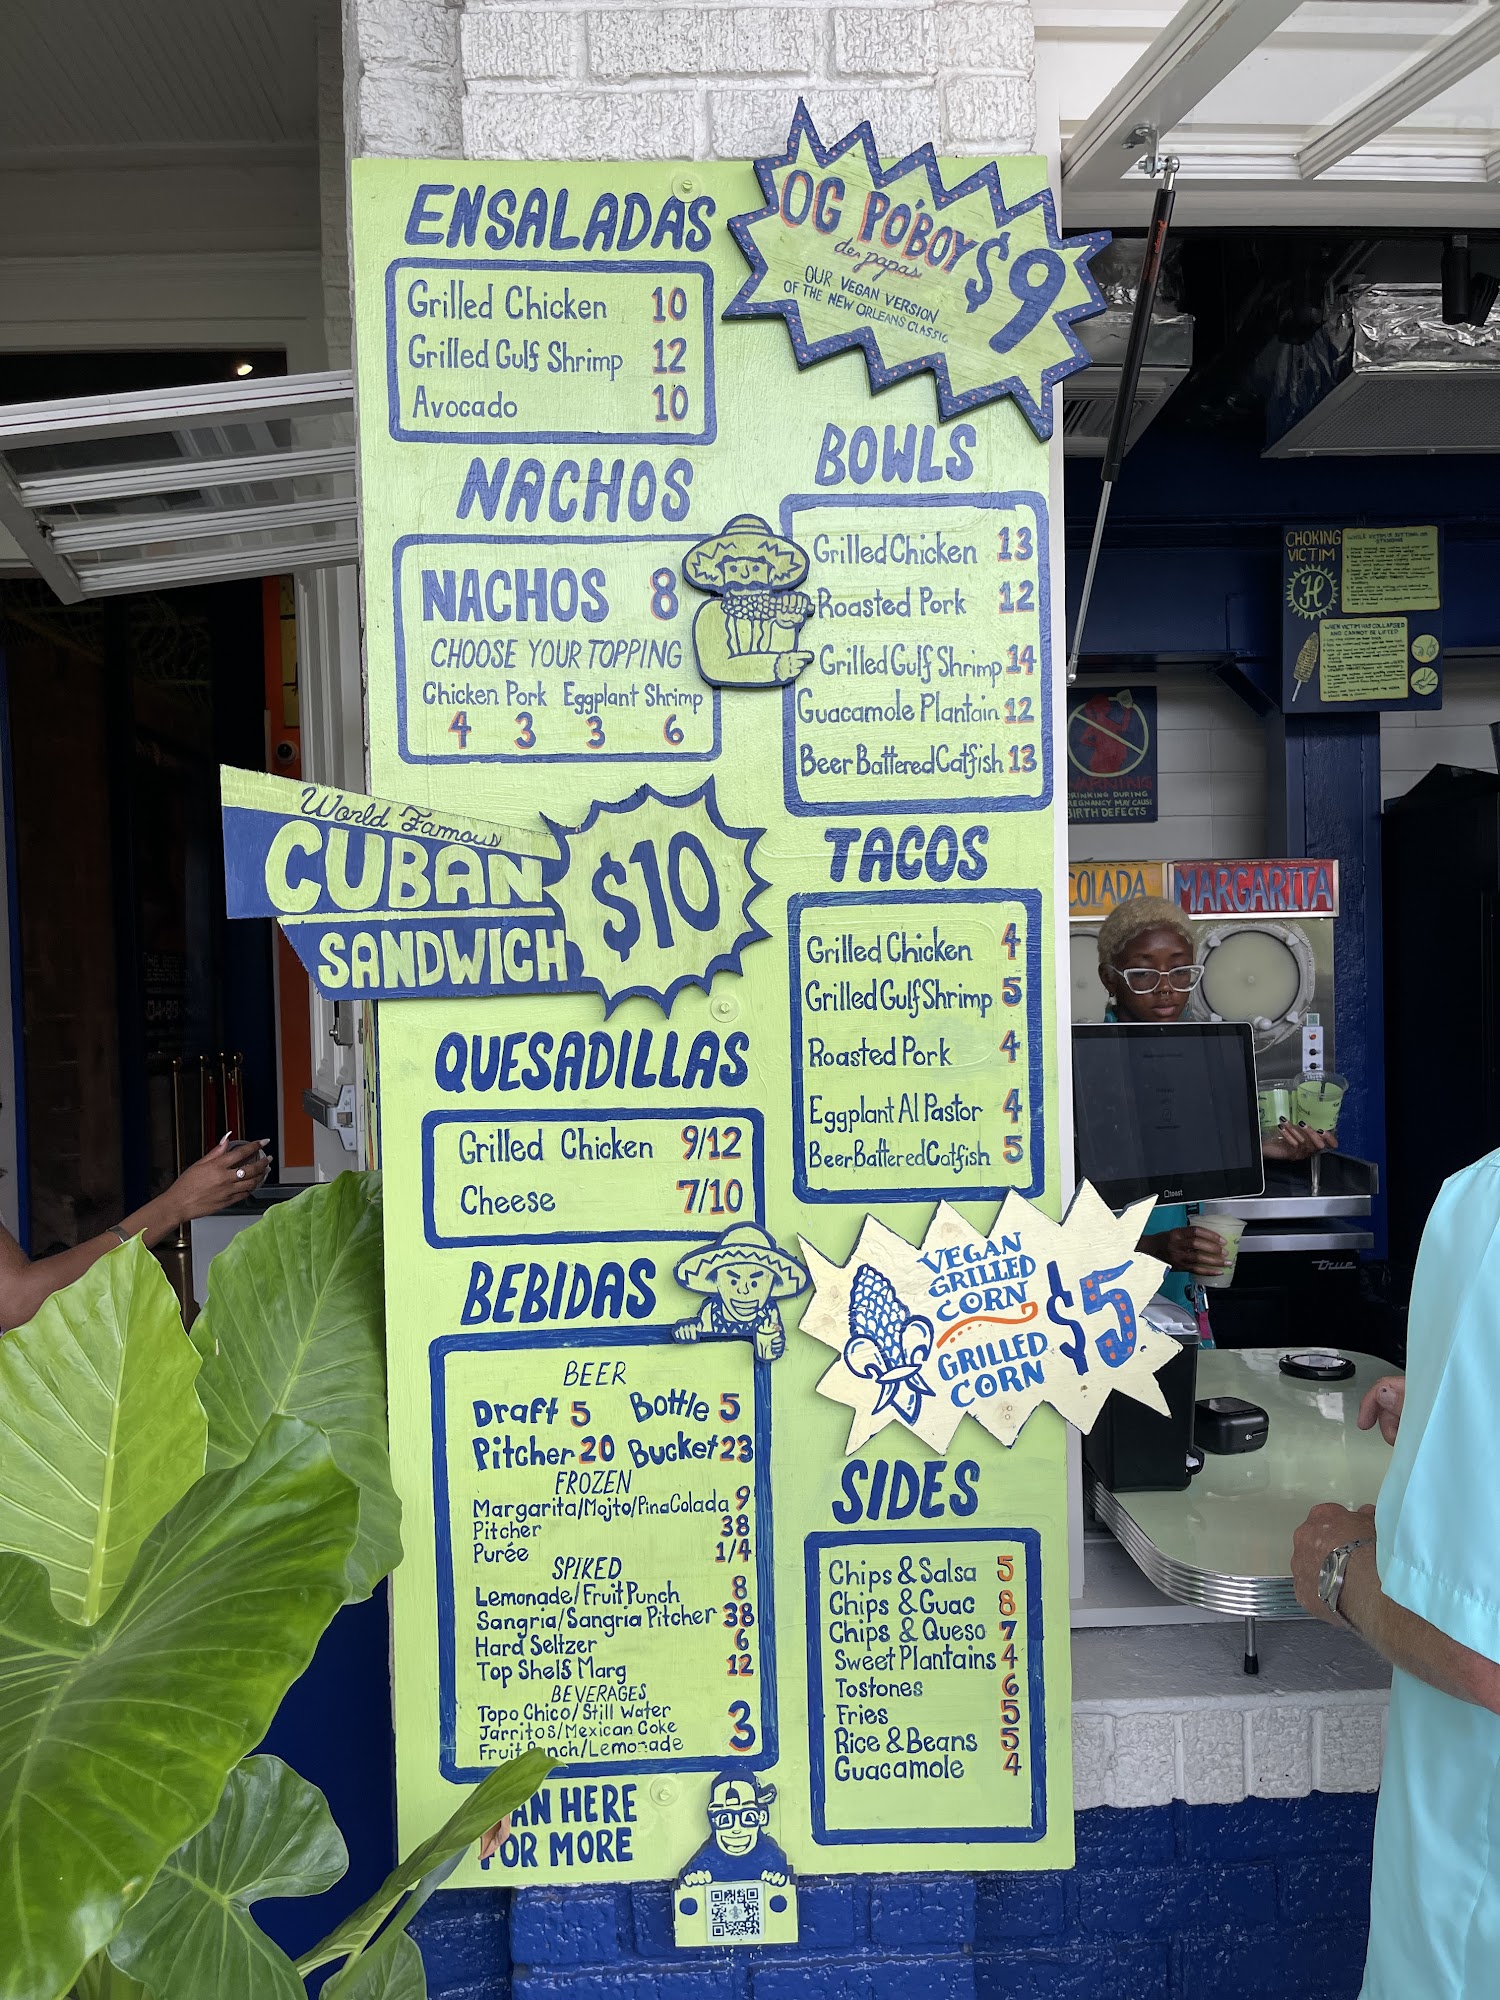 ENSALADAS
Grilled Chicken 10
Grilled Gulf Shrimp 12
Avocado 10
OG PO'BOY $9
de papas
OUR VEGAN VERSION
OF THE NEW ORLEANS CLASSIC
NACHOS
NACHOS 8
CHOOSE YOUR TOPPING
Chicken Pork Eggplant Shrimp
4 3 3 6
BOWLS
Grilled Chicken 13
Roasted Pork 12
Grilled Gulf Shrimp 14
Guacamole Plantain 12
Beer Battered Catfish 13
World Famous
CUBAN
SANDWICH
$10
TACOS
Grilled Chicken 4
Grilled Gulf Shrimp 5
Roasted Pork 4
Eggplant Al Pastor 4
Beer Battered Catfish 5
QUESADILLAS
Grilled Chicken 9/12
Cheese 7/10
VEGAN
GRILLED
CORN
GRILLED
CORN
$5
BEBIDAS
BEER
Draft 5 Bottle 5
Pitcher 20 Bucket 23
FROZEN
Margarita/Mojito/Pina Colada 9
Pitcher 38
Purée 1/4
SPIKED
Lemonade/Fruit Punch 8
Sangria/Sangria Pitcher 38
Hard Seltzer 6
Top Shelf Marg 12
BEVERAGES
Topo Chico/Still Water
Jarritos/Mexican Coke 3
Fruit Punch/Lemonade
SIDES
Chips & Salsa 5
Chips & Guac 8
Chips & Queso 7
Sweet Plantains 4
Tostones 6
Fries 5
Rice & Beans 5
Guacamole 4
AN HERE
FOR MORE
CHOKING
VICTIM
H
WHEN VICTIM HAS COLLAPSED
AND CANNOT BE LIFTED
WARNING
DRINKING DURING
PREGNANCY MAY CAUSE
BIRTH DEFECTS
COLADA
MARGARITA
toast
True